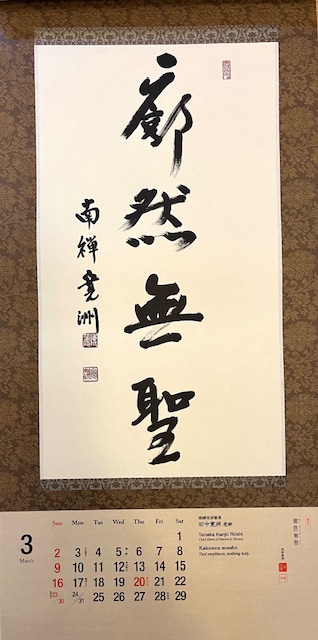 廓然無聖
南禪寛洲
3
March
Sun Mon Tue Wed Thu Fri Sat
1
2 3 4 5 6 7 8
9 10 11 12 13 14 15
16 17 18 19 20 21 22
23/30 24/31 25 26 27 28 29
田中寛洲 老師
Tanaka Kanjū Rōshi
Kakunen mushō
Vast emptiness, nothing holy
廓然無聖